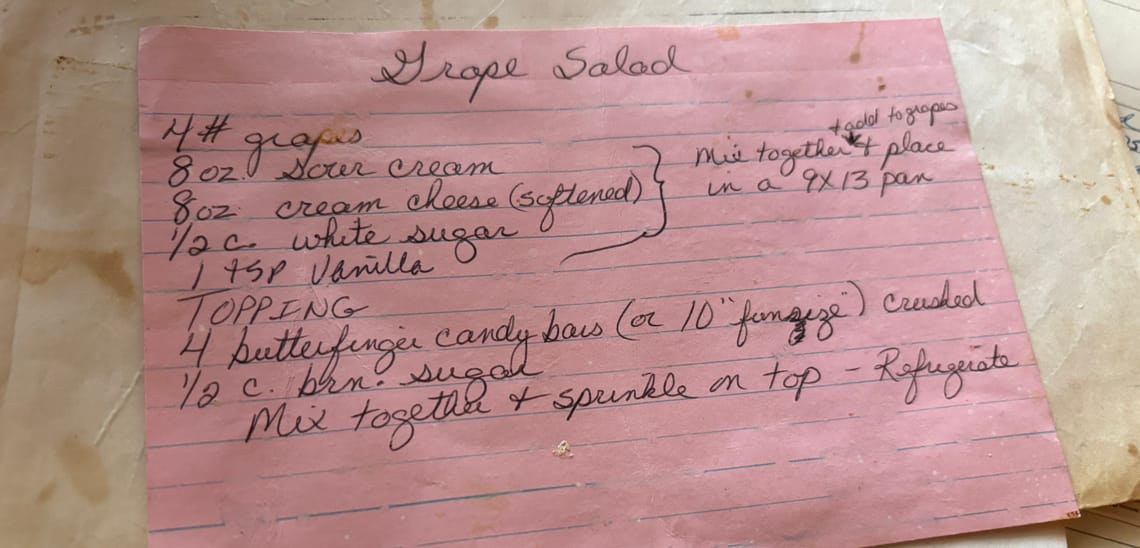 Grape Salad
4# grapes
8 oz. Sour cream
8 oz cream cheese (softened)
1/2 c. white sugar
1 tsp Vanilla
+ add to grapes
Mix together + place
in a 9X13 pan
TOPPING
4 butterfinger candy bars (or 10 "funsize") crushed
1/2 c. brn. sugar
Mix together + sprinkle on top - Refrigerate